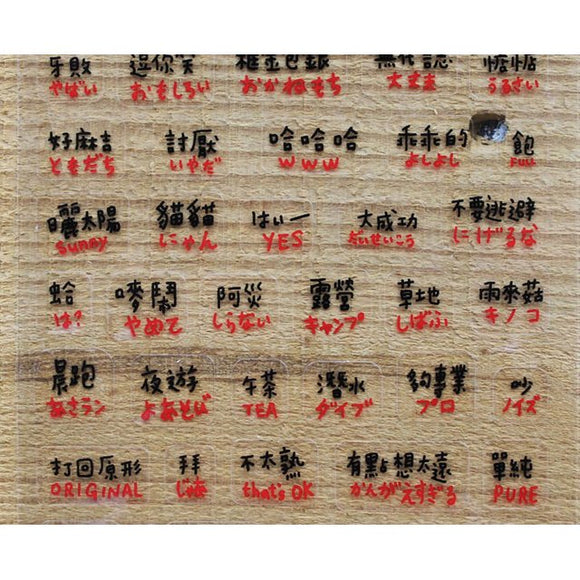 牙敗 逗你笑 無代誌 惦惦
やばい おもしろい おかねもち 大丈夫 うるさい
好麻吉 討厭 哈哈哈 乖乖的 飽
ともだち いやだ www よしよし FULL
曬太陽 貓貓 はいー 大成功 不要逃避
sunny にゃん YES だいせいこう にげるな
蛤 嘜鬧 阿災 露營 草地 雨來菇
は? やめて しらない キャンプ しばふ キノコ
晨跑 夜遊 午茶 潛水 夠專業 吵
あさラン よあそび TEA ダイブ プロ ノイズ
打回原形 拜 不太熟 有點想太遠 單純
ORIGINAL じゃあ that's OK かんがえすぎる PURE